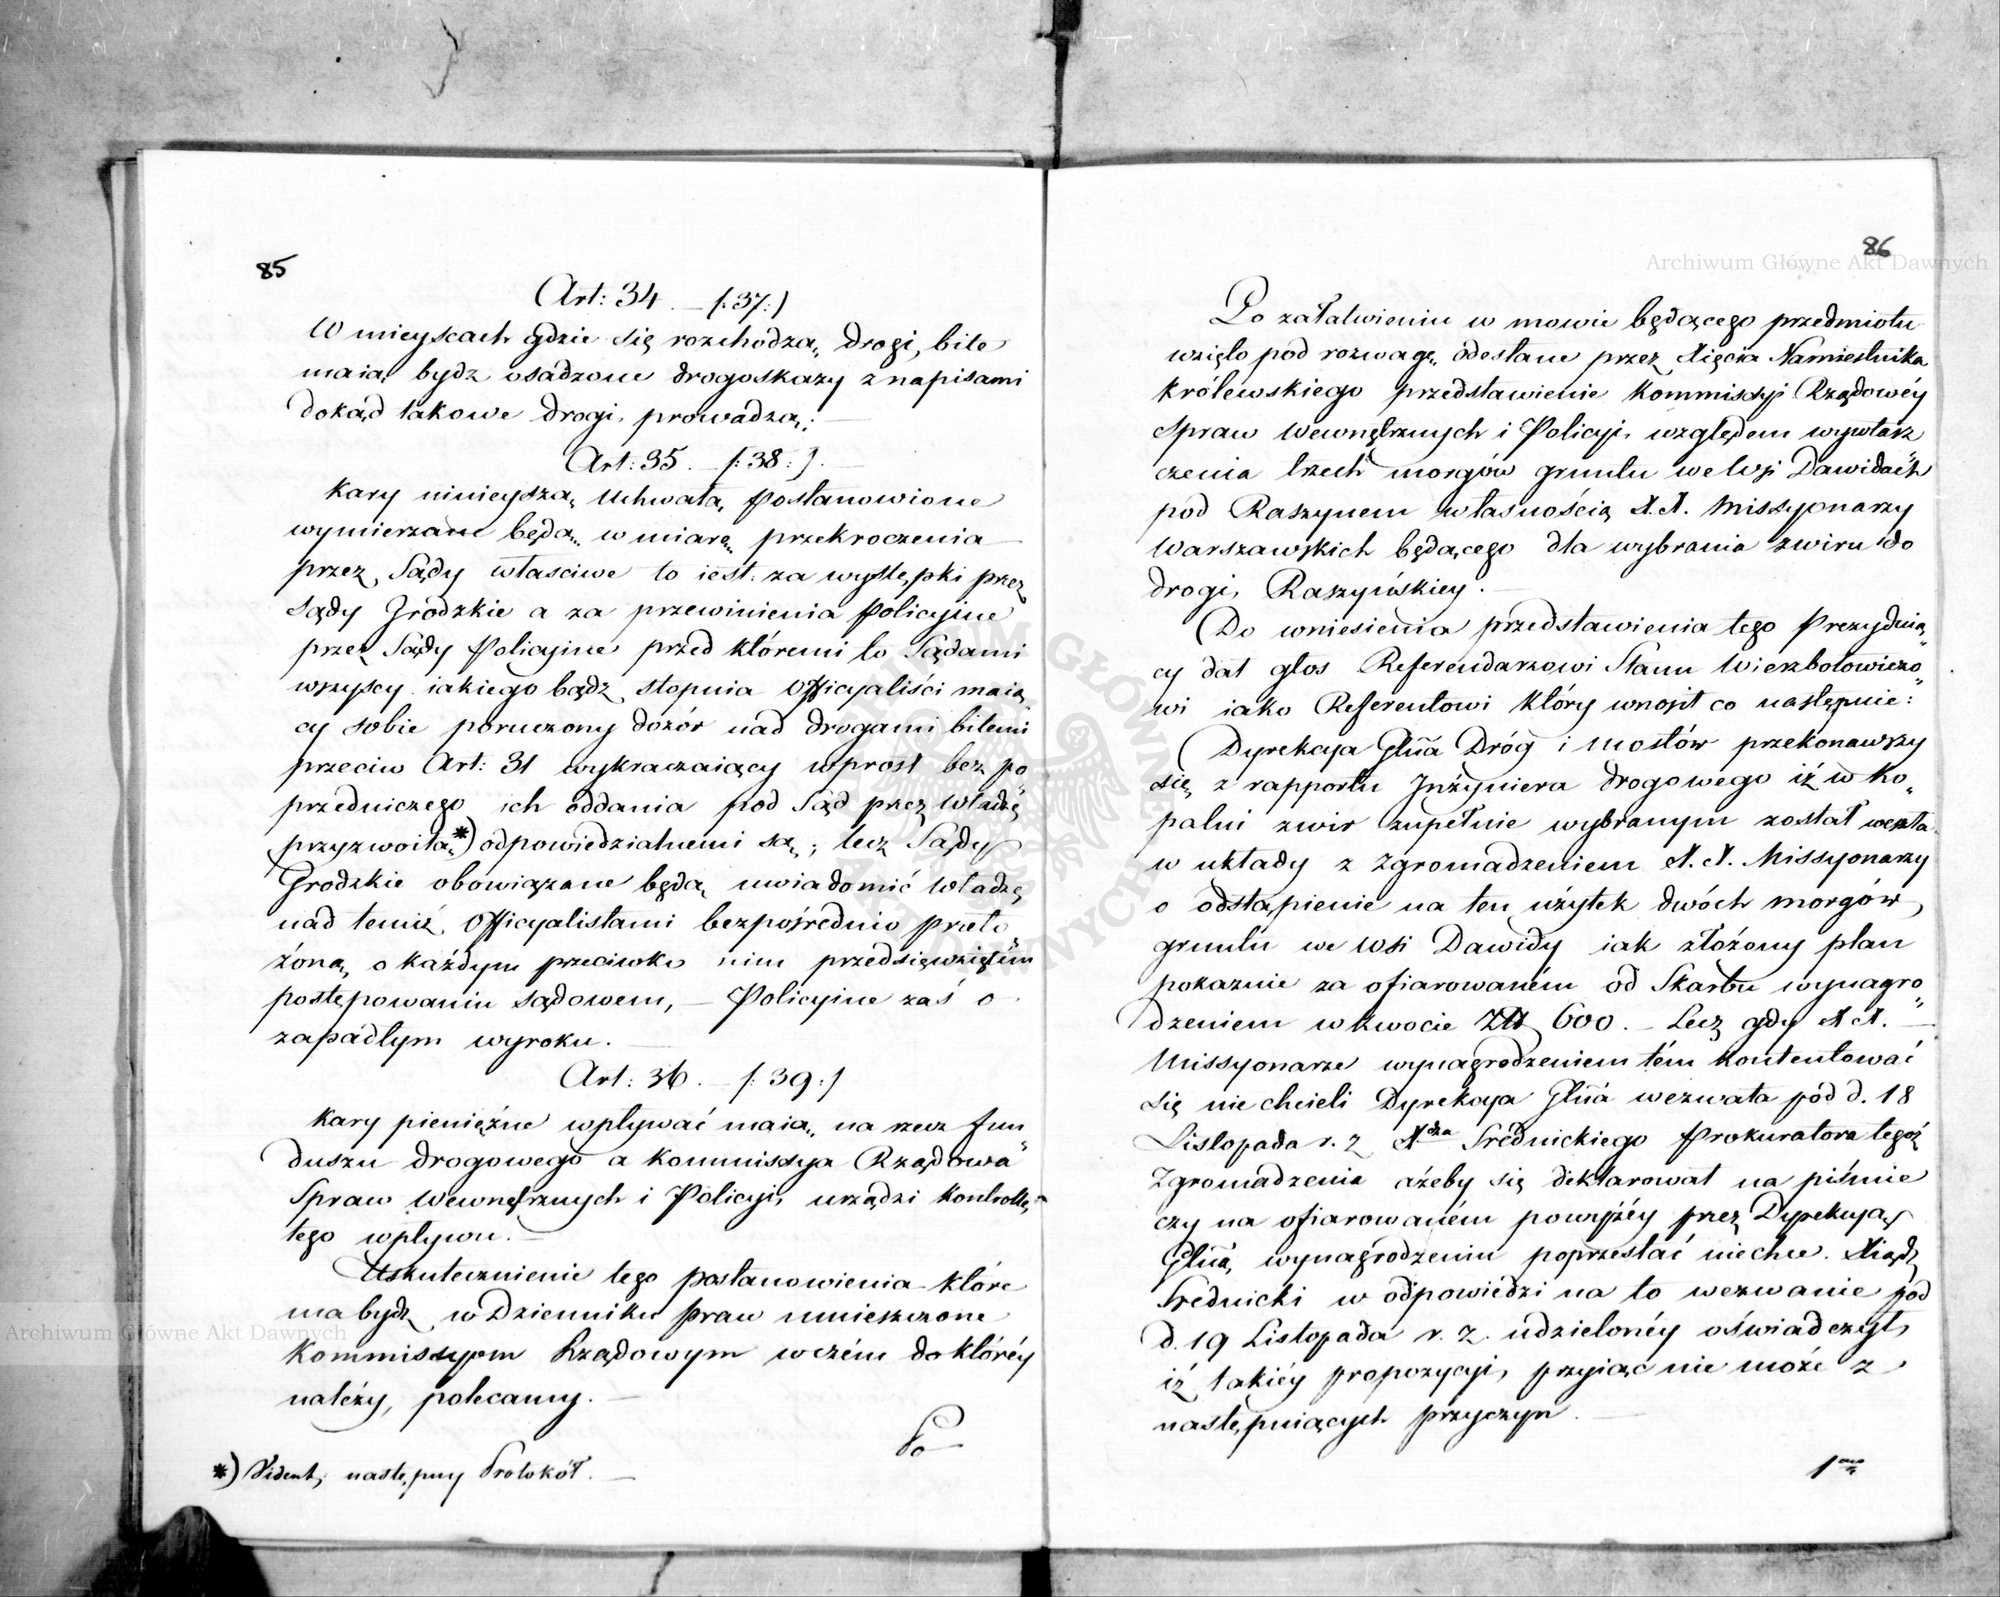 85
Art: 34. — /:37:/
W mieyscach gdzie się rozchodzą, drogi, bite
maią bydz osadzone drogoskazy z napisami
dokąd takowe drogi, prowadzą; —
Art: 35. — /:38:/. —
Kary ninieyszą, Uchwałą, postanowione
wymierzane będą, w miarę, przekroczenia —
przez Sądy właściwe to iest: za występki przez
Sądy Grodzkie a za przewinienia policyine
przez Sądy Policyine przed któremi to Sądami
wszyscy iakiego bądz stopnia Officyaliści maią„
cy sobie poruczony dozór nad drogami bitemi
przeciw Art: 31 wykraczaiący wprost bez po„
przedniczego ich oddania pod Sąd przez Władzę
przyzwoitą *) odpowiedzialnemi są; lecz Sądy
Grodzkie obowiązane będą uwiadomić Władzę
nad temiż Officyalistami bezpośrednio przeło„
żoną, o każdym przeciwko nim przedsięwziętem
postępowaniu sądowem, — Policyine zaś o
zapadłym wyroku. —
Art: 36. — /:39:/
Kary pieniężne wpływać maią, na rzecz fun„
duszu drogowego a Kommissya Rządowa
Spraw Wewnętrznych i Policyi, urządzi kontrollę,
tego wpływu. —
Uskutecznienie tego postanowienia które
ma bydz w Dzienniku praw umieszczone
Kommissyom Rządowym w czém do któréy
należy, polecamy. —
Po
*) Vident, następny Protokół. —
86
Po załatwieniu w mowie będącego przedmiotu
wzięto pod rozwagę, odesłane przez Xięcia Namiestnika
Królewskiego przedstawienie Kommissyi Rządowéy
Spraw Wewnętrznych i Policyi, względem wywłasz
czenia trzech morgów gruntu we Wsi Dawidach
pod Raszynem własnością X.X. Missyonarzy
Warszawskich będącego dla wybrania zwiru do
drogi, Raszyńskiey. —
Do wniesienia przedstawienia tego Prezyduią„
cy dał głos Referendarzowi Stanu Wierzbołowiczo„
wi iako Referentowi który wnosił co następuie:
Dyrekcya Głna Dróg i Mostów przekonawszy
się, z rapportu Inżyniera drogowego iż w ko„
palni zwir zupełnie wybranym został weszła
w układy z Zgromadzeniem X.X. Missyonarzy
o odstąpienie na ten użytek dwóch morgów,
gruntu we Wsi Dawidy iak złożony plan
pokazuie za ofiarowaném od Skarbu wynagro„
dzeniem w kwocie Zł 600. — Lecz gdy X X. —
Missyonarze wynagrodzeniem tém kontentować
się nie chcieli Dyrekcya Głna wezwała pod d. 18
Listopada r. z. Xdza Srednickiego Prokuratora tegoż
Zgromadzenia ażeby się deklarował na piśmie
czy na ofiarowaném powyżéy przez Dyrekcyą
Głną, wynagrodzeniu poprzestać niechce. Xiądz
Srednicki w odpowiedzi na to wezwanie pod
d. 19 Listopada r. z. udzielonéy oświadczył,
iż takiéy propozycyi, przyiąć nie może z
następuiących przyczyn. —
1mo